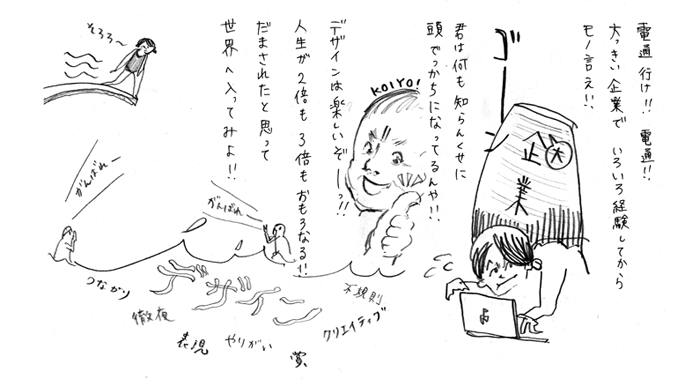 電通行け!! 電通!!
大っきい企業で いろいろ経験してから
モノ言え!!
ゴー
大
企業
君は何も知らんくせに
頭でっかちになってるんや!!
KOIYO!
デザインは楽しいぞーっ!!
人生が2倍も3倍もおもろなる!!
だまされたと思って
世界へ入ってみよ!!
そろろ〜
がんばれー
がんばれ
デザイン
つながり
徹夜
表現
やりがい
賞
クリエイティブ
不規則